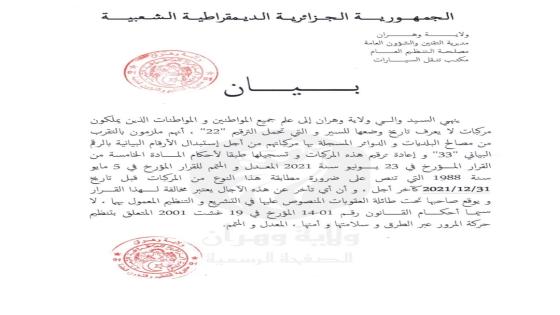 الجمهورية الجزائرية الديمقراطية الشعبية
ولاية وهران
مديرية التقنين والشؤون العامة
مصلحة التنظيم العام
مكتب تنقل السيارات
بيان
ينهي السيد والي ولاية وهران إلى علم جميع المواطنين و المواطنات الذين يملكون
مركبات لا يعرف تاريخ وضعها للسير و التي تحمل الترقيم "22" ، أنهم ملزمون بالتقرب
من مصالح البلديات و الدوائر المسجلة بها مركباتهم من أجل إستبدال الأرقام البيانية بالرقم
البياني "33" و إعادة ترقيم هذه المركبات و تسجيلها طبقا لأحكام المادة الخامسة من
القرار المؤرخ في 23 يونيو سنة 2021 المعدل و المتمم للقرار المؤرخ في 5 مايو
سنة 1988 التي تنص على ضرورة مطابقة هذا النوع من المركبات قبل تاريخ
2021/12/31 كآخر أجل ، و أن أي تأخر عن هذه الآجال يعتبر مخالفة لهذا القرار
و يوقع صاحبها تحت طائلة العقوبات المنصوص عليها في التشريع و التنظيم المعمول بها ، لا
سيما أحكام القانون رقم 01-14 المؤرخ في 19 غشت 2001 المتعلق بتنظيم
حركة المرور عبر الطرق و سلامتها و أمنها ، المعدل و المتمم.
ولاية وهران
الصفحة الرسمية